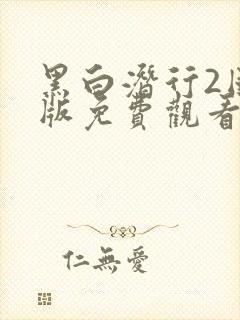 黑白潛行2
版免費觀看
仁無愛